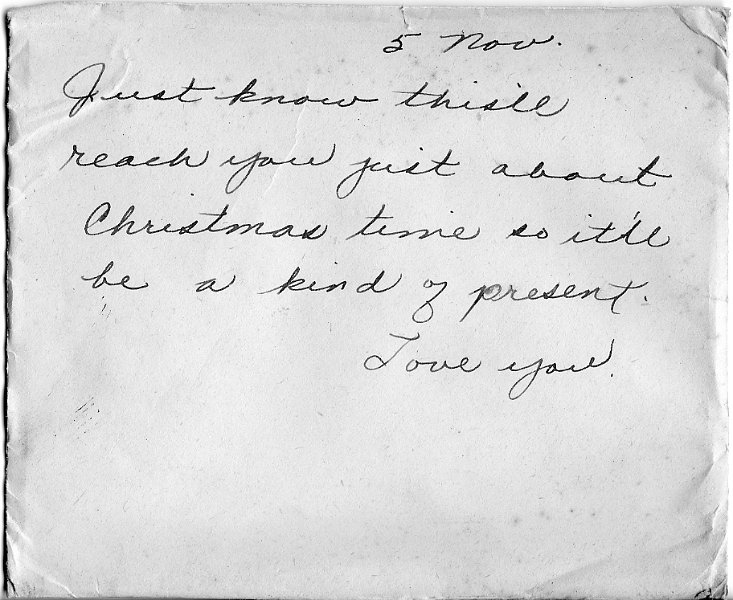 5 Nov.
Just know this'll
reach you just about
Christmas time so it'll
be a kind of present.
Love you.